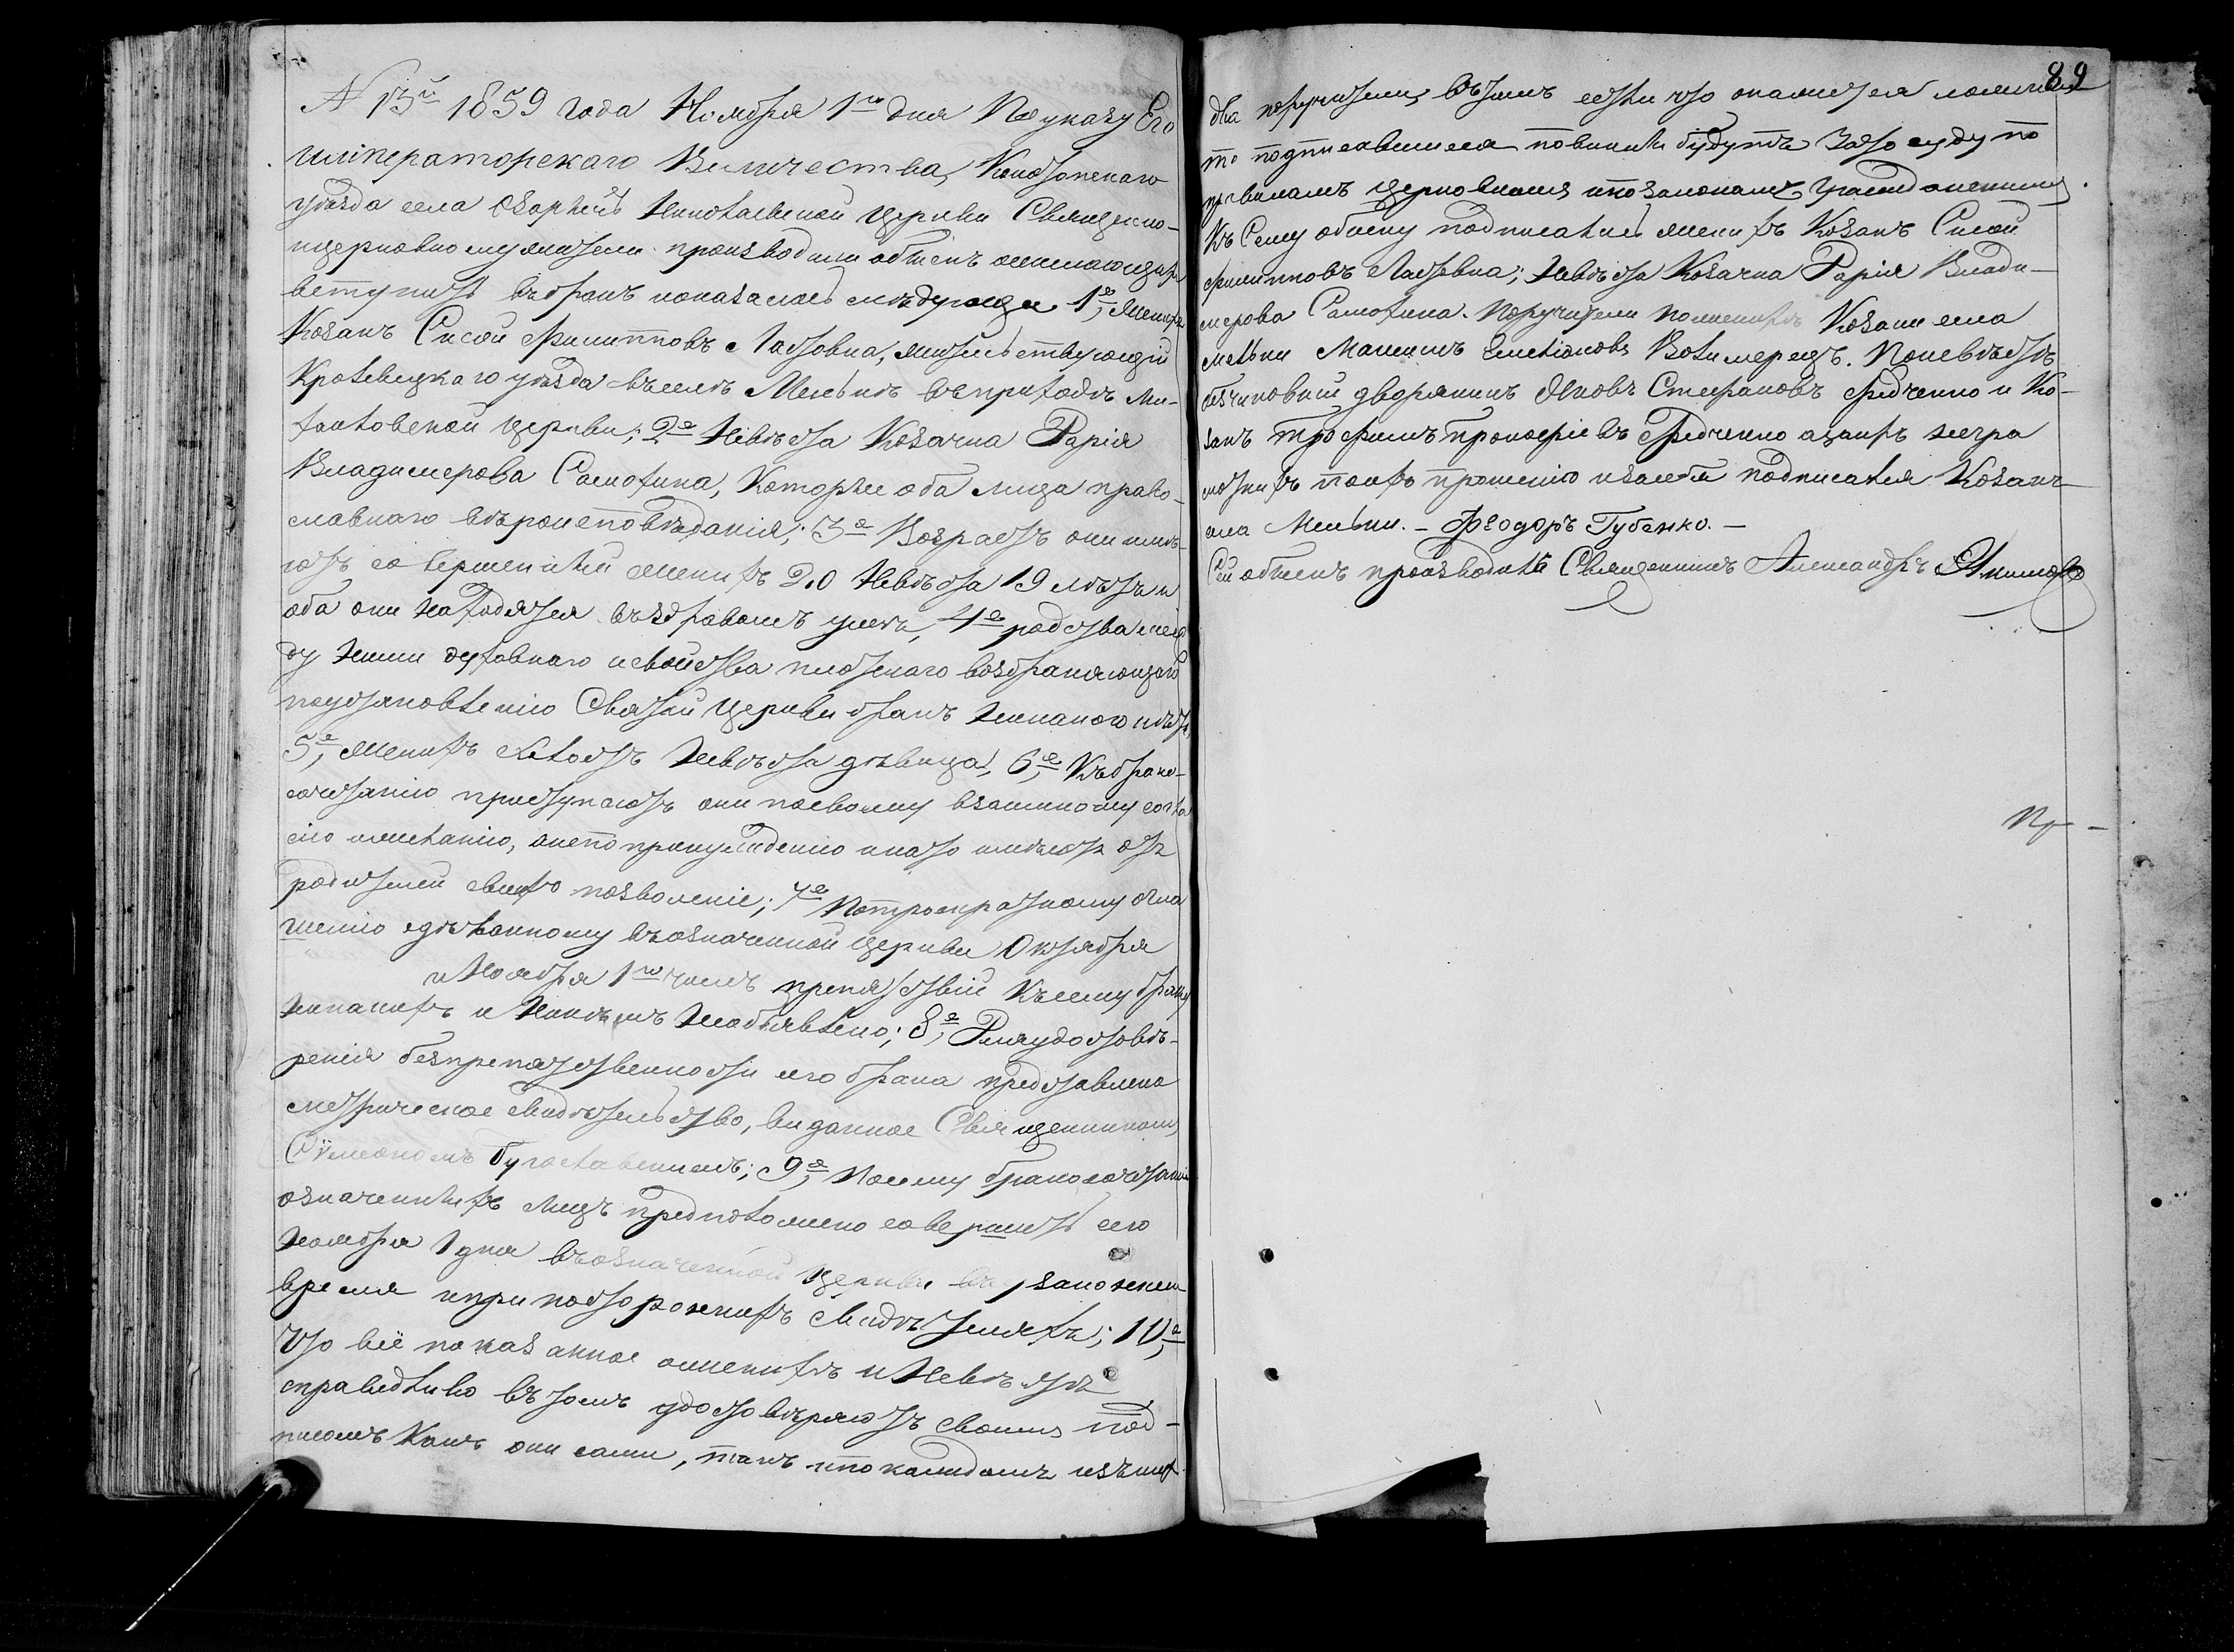 N 13й 1859 года Ноября 1го дня По указу Его
императорскаго Величества, Конотопскаго
уезда села Николаевской Церкви Священно-
церковнослужители производили обыскъ о желающихъ
вступить въ бракъ и оказалось следующее 1е, Женихъ
Козакъ Сисой Филипповъ жительствующий
Кролевецкаго уезда въ селе Мельне въ приходе Ми-
хайловской Церкви; 2е Невеста Козачка Дарія
Владимерова Самохина, Которые оба лица право-
славнаго вероисповеданія; 3е Возрастъ они име-
ютъ совершенный женихъ 20 Невеста 19 летъ и
оба они находятся въ здравомъ уме, 4е родства меж
ду ними духовнаго и свойства плотскаго возбраняющаго
по установленію Святой Церкви бракъ никакого нетъ,
5е, Женихъ холостъ Невеста девица, 6е, Къ брако-
сочетанію приступаютъ они по своему взаимному согла
сію и желанію, а не по принужденію и на то имеютъ отъ
родителей своихъ позволеніе; 7е По троекратному огла
шенію сделанному въ означенной Церкви Октября
и Ноября 1го числъ препятствій къ сему браку
никакихъ и никемъ не объявлено; 8е, Для удостове-
ренія безпрепятственности сего брака представлено
метрическое свидетельство, выданное Священникомъ
Сѵмеономъ 9е, Посему бракосочетаніе
означенныхъ лицъ предположено совершить сего
Ноября 1 дня въ означенной Церкви въ узаконенное
время и при посторонихъ свидетеляхъ; 10е,
Что всё показанное о женихе и Невесте
справедливо въ томъ удостоверяютъ своимъ под-
писомъ какъ они сами, такъ и по каждомъ изъ нихъ
89
два поручители, въ томъ если что окажется ложнымъ
то подписавшиеся повинны будутъ за то суду по
правиламъ Церковнымъ и по законамъ гражданскимъ.
Къ Сему обыску подписались женихъ Козакъ Сисой
Филипповъ Невеста Козачка Дарія Влади-
мерова Самохина. Поручители по женихе Козаки села
Мельни Максимъ По невесте
безчиновный дворянинъ Яковъ Стефановъ Федченко и Ко-
закъ Трофимъ Прокофіевъ Федченко а за нихъ негра
мотныхъ по ихъ прошенію и за себя подписался Козакъ
села Мельни. - Феодоръ Губенко. -
Сей обыскъ производилъ Священникъ Александръ